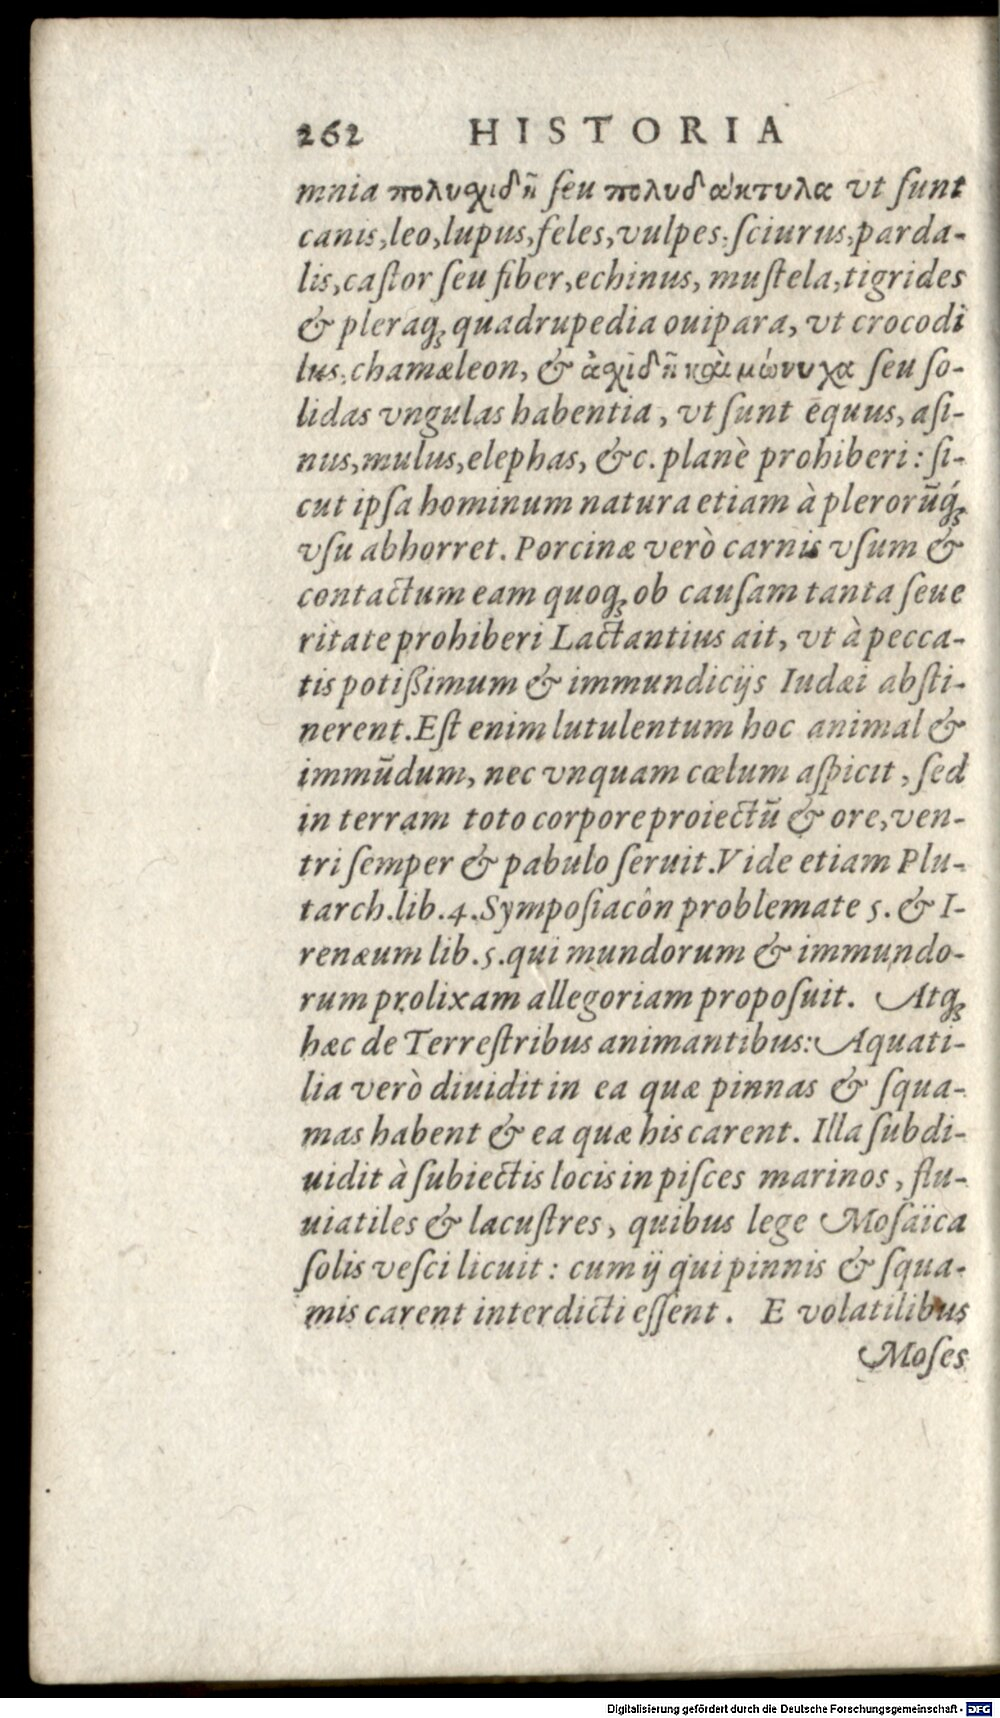 262 HISTORIA
mnia πολυχιδῆ ſeu πολυδάκτυλα vt ſunt
canis, leo, lupus, feles, vulpes, ſciurus, parda-
lis, caſtor ſeu fiber, echinus, muſtela, tigrides
& pleraq́ꝫ quadrupedia ouipara, vt crocodi
lus, chamæleon, & ἀχιδῆ καὶ μώνυχα ſeu ſo-
lidas vngulas habentia, vt ſunt equus, aſi-
nus, mulus, elephas, &c. planè prohiberi: ſi-
cut ipſa hominum natura etiam à plerorũq́ꝫ
vſu abhorret. Porcinæ verò carnis vſum &
contactum eam quoqꝫ ob cauſam tanta ſeue
ritate prohiberi Lactantius ait, vt à pecca-
tis potißimum & immundicijs Iudæi abſti-
nerent. Eſt enim lutulentum hoc animal &
immũdum, nec vnquam cœlum aſpicit, ſed
in terram toto corpore proiectũ & ore, ven-
tri ſemper & pabulo ſeruit. Vide etiam Plu-
tarch. lib. 4. Sympoſiacôn problemate 5. & I-
renæum lib. 5. qui mundorum & immundo-
rum prolixam allegoriam propoſuit. Atqꝫ
hæc de Terreſtribus animantibus: Aquati-
lia verò diuidit in ea quæ pinnas & ſqua-
mas habent & ea quæ his carent. Illa ſubdi-
uidit à ſubiectis locis in piſces marinos, flu-
uiatiles & lacuſtres, quibus lege Moſaïca
ſolis veſci licuit: cum ij qui pinnis & ſqua-
mis carent interdicti eſſent. E volatilibus
Moſes
Digitalisierung gefördert durch die Deutsche Forschungsgemeinschaft - DFG